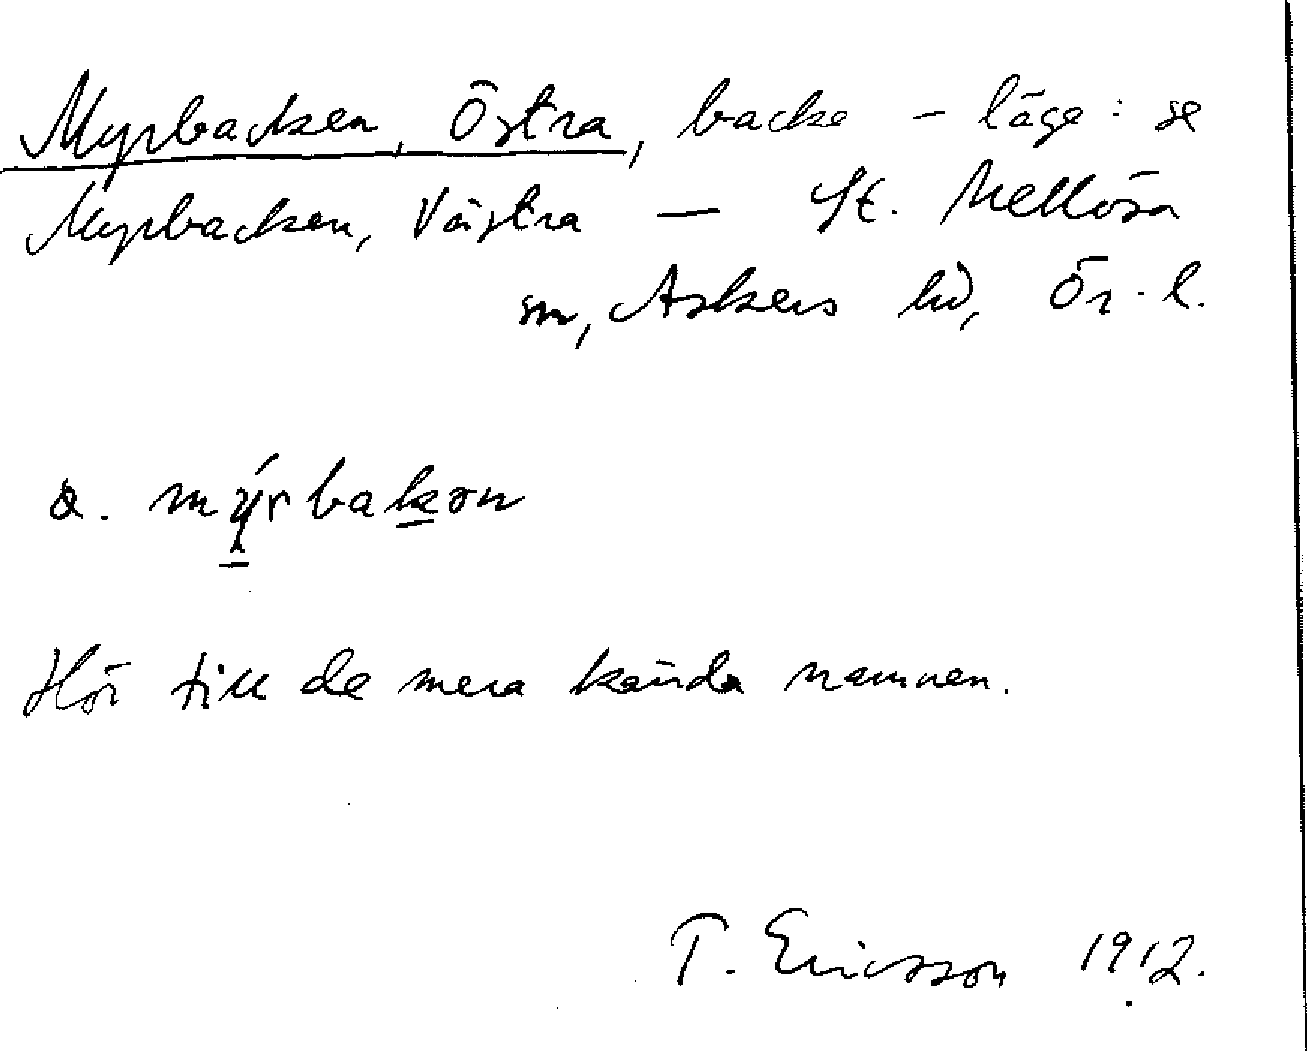 Myrbacken, Östra, backe – läge: se
Myrbacken, Västra — St. Mellösa
sn, Askers hd, Ör. l.
a. mýrbakən
Hör till de mera kända namnen.
T. Ericsson 1912.